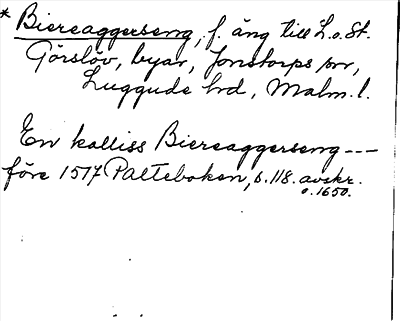 * Biereaggerseng, f. äng till L. o. St.
Görslöv, byar, Jonstorps sn,
Luggude hd, Malm. l.
En kalliss Biereaggerseng ---
före 1517 Palteboken, s. 118. avskr.
o. 1650.